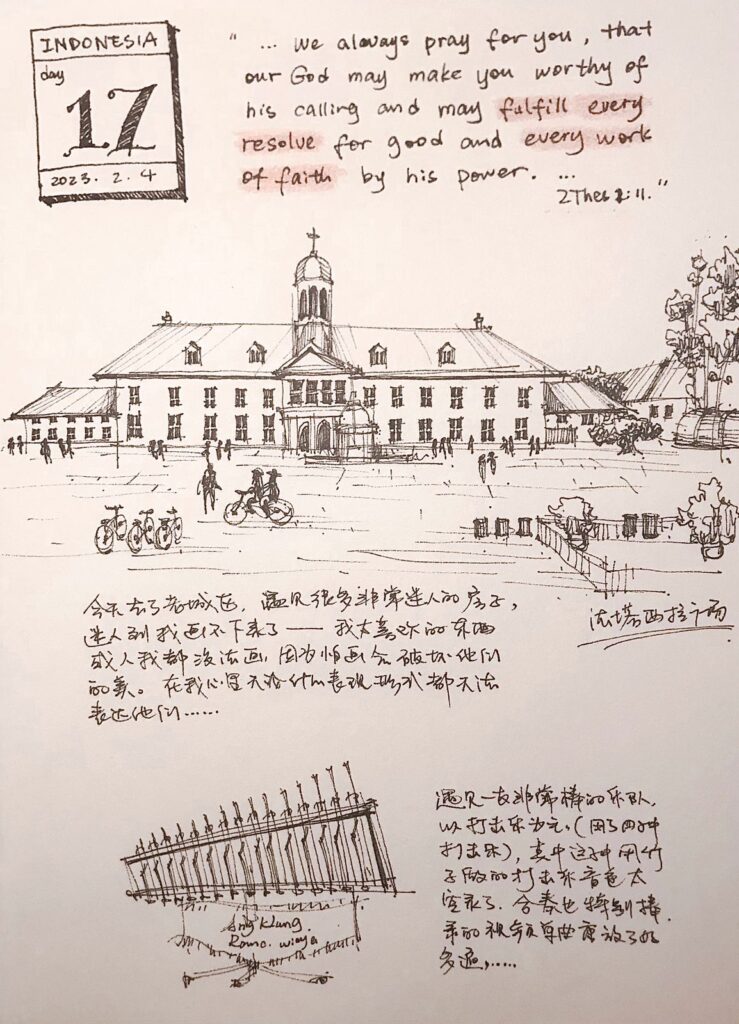 INDONESIA
day
17
2023. 2. 4
"... we always pray for you, that
our God may make you worthy of
his calling and may fulfill every
resolve for good and every work
of faith by his power. ...
2 Thes 1:11."
今天去了老城区，遇见很多非常迷人的房子，
迷人到我画不下来了——我太喜欢的东西
或人我都没法画，因为怕画会破坏他们
的美。在我心里无论什么表现形式都无法
表达他们……
法塔西拉广场
遇见一支非常棒的乐队，
以打击乐为主。(用了四种
打击乐)，其中这种用竹
子做的打击乐音色太
空灵了。合奏也特别棒。
录的视频单曲重放了好
多遍，……
Angklung
Romo. wijaya